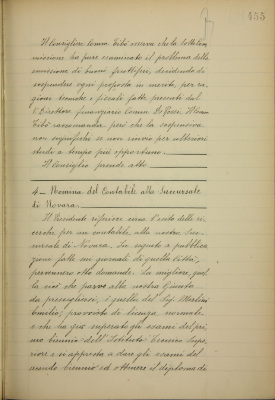 155
Il Consigliere Comm. Tibò osserva che la Sotto Com-
missione ha pure esaminato il problema della
emissione di buoni fruttiferi, decidendo di
sospendere ogni proposta in merito, per ra-
gioni tecniche e fiscali fatte presenti dal
V. Direttore finanziario Comm. Di Il Comm.
Tibò raccomanda però che la sospensiva
non significhi se non rinvio per ulteriori
studi a tempo più opportuno.
Il Consiglio prende atto
4 - Nomina del Contabile alla Succursale
di Novara.
Il Presidente riferisce circa l'esito delle ri-
cerche per un contabile alla nostra Suc-
cursale di Novara. In seguito a pubblica-
zioni fatte sui giornali di quella Città,
pervennero otto domande. La migliore, quel-
la cioè che parve alla nostra Giunta
da prescegliersi, è quella del Sig.
Emilio, provvisto di licenza normale
e che ha già superato gli esami del pri-
mo biennio dell'Istituto tecnico supe-
riore e si appresta a dare gli esami del
secondo biennio ed ottenere il diploma da